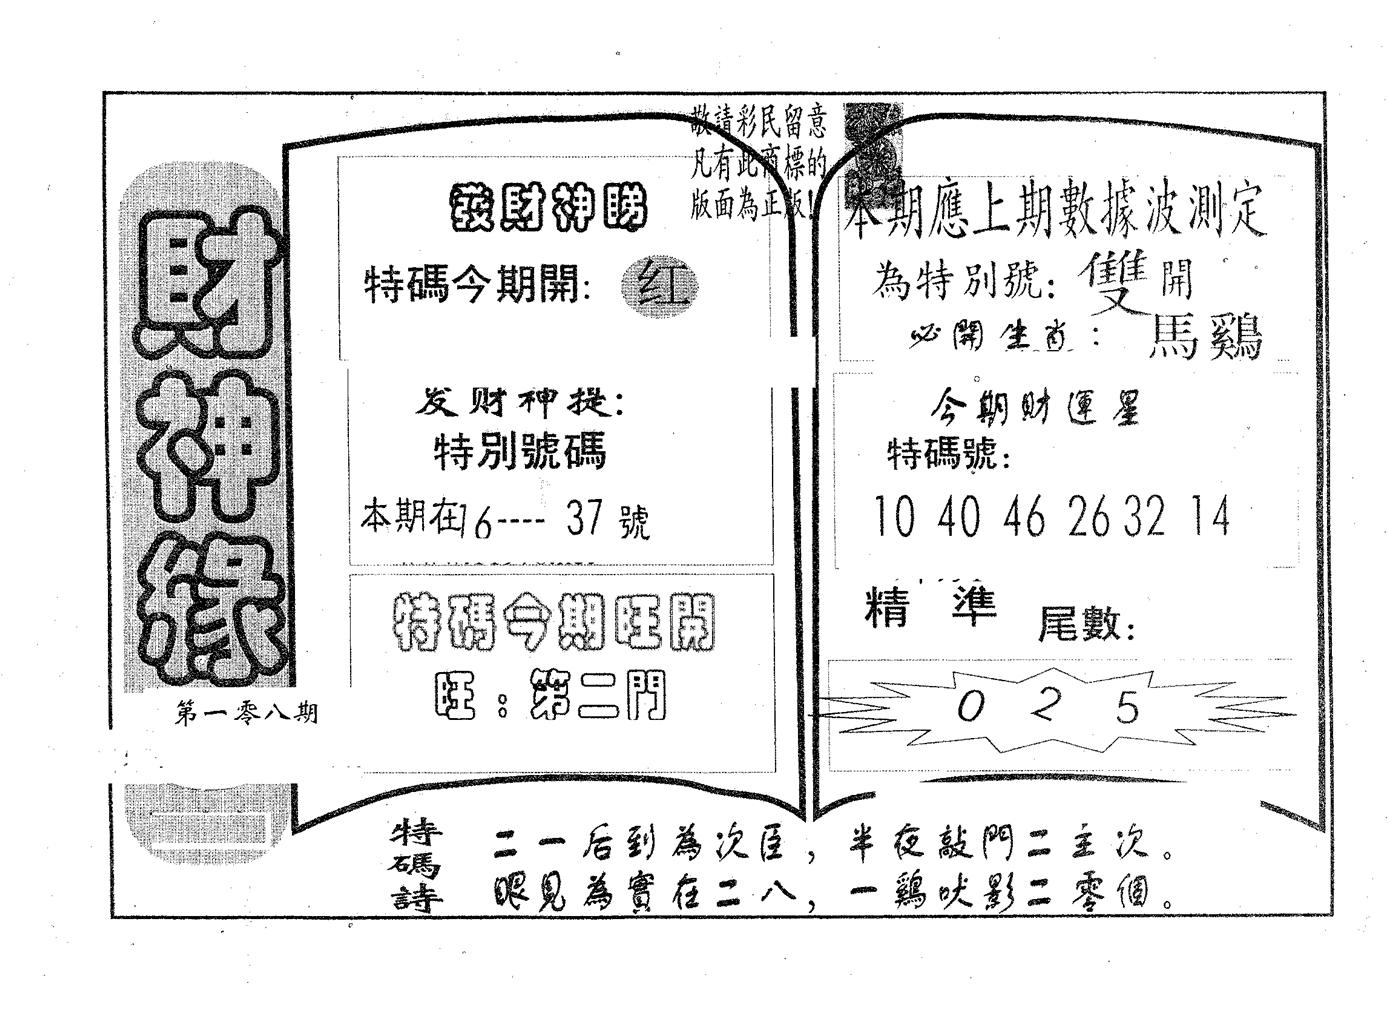 財神緣
第一零八期
敬請彩民留意
凡有此商標的
版面為正版!
發財神睇
特碼今期開: 红
发财神提:
特別號碼
本期在16---- 37 號
特碼今期旺開
旺:第二門
本期應上期數據波測定
為特別號: 雙開
必開生肖: 馬鷄
今期財運星
特碼號:
10 40 46 26 32 14
精 準 尾數:
0 2 5
特碼詩
二一后到為次臣,半夜敲門二主次。
眼見為實在二八,一鷄吠影二零個。